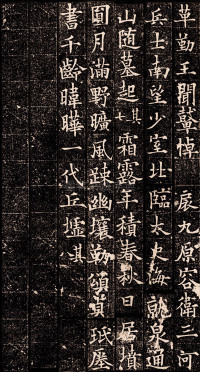 草勤王聞鼙悼 扆九原容衛三河
兵士南望少室北臨太史海就泉通
山随墓起其七霜露年積春秋日居墳
圃月滿野曠風踈幽壤勒頌貞珉
書千齡暐曄一代丘墟其